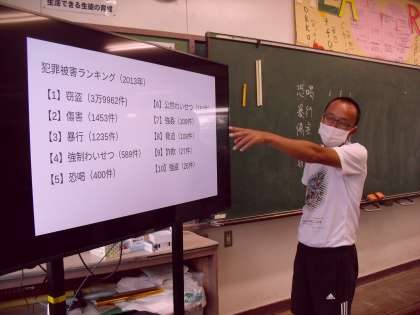 生活できる生徒の育成
犯罪被害ランキング（2013年）
【1】窃盗（3万9962件）
【2】傷害（1453件）
【3】暴行（1235件）
【4】強制わいせつ（589件）
【5】恐喝（400件）
【6】公然わいせつ
【7】強姦
【8】脅迫
【9】詐欺（27件）
【10】強盗（26件）
恐喝
暴行
傷害